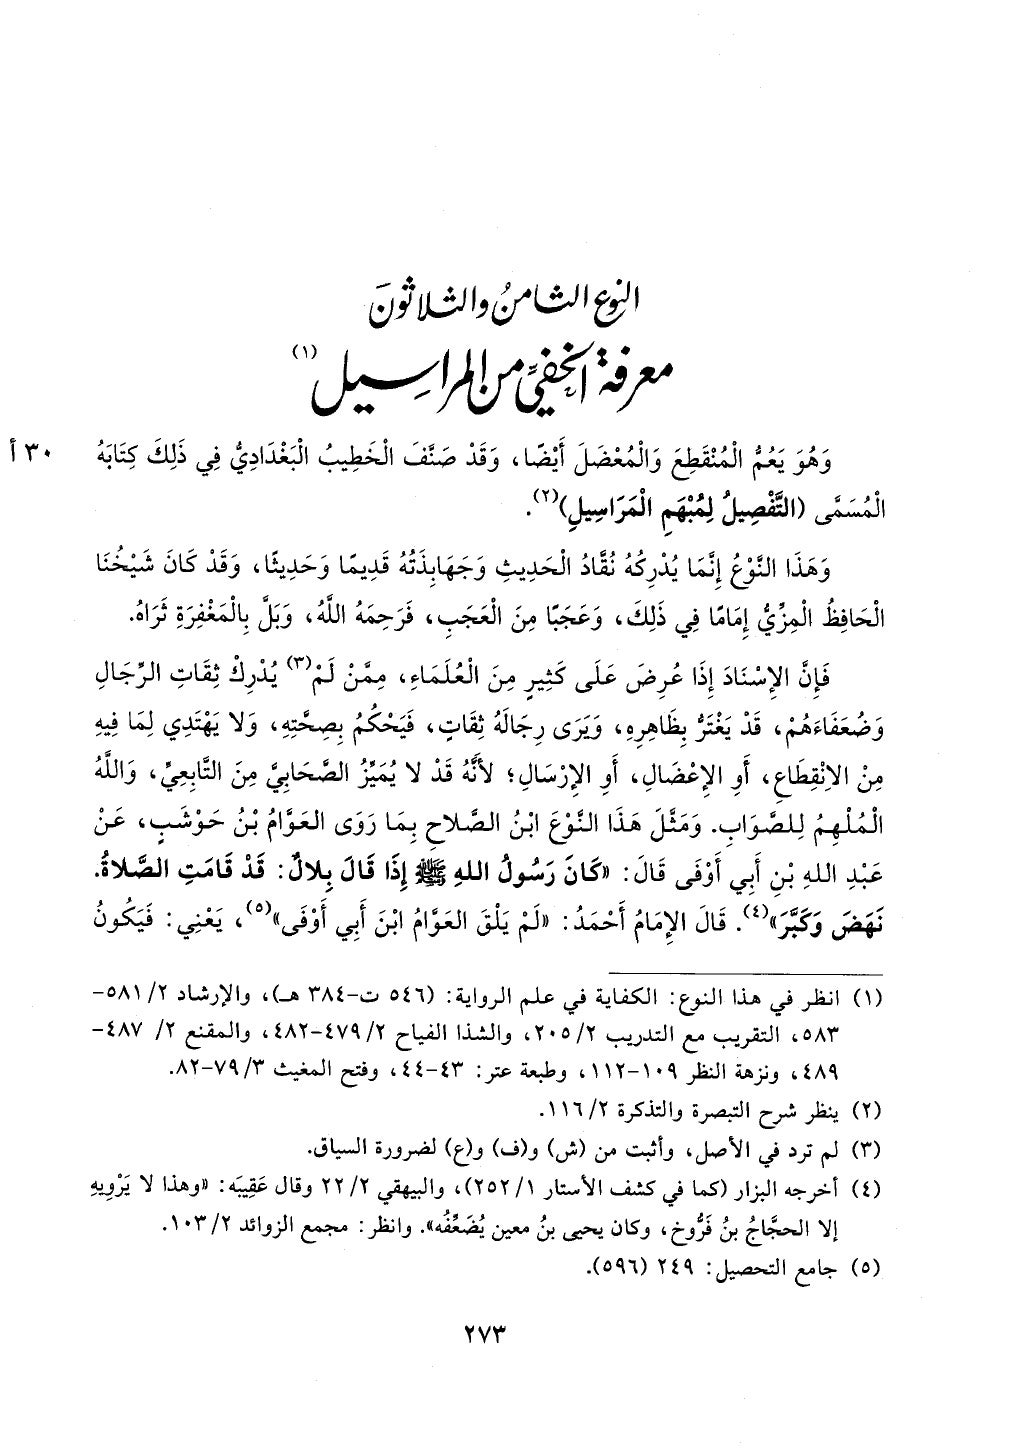 النوع الثامنُ والثلاثونَ
معرفة الخفيِّ من المراسيل (١)
وَهُوَ يَعُمُّ الْمُنْقَطِعَ وَالْمُعْضَلَ أَيْضًا، وَقَدْ صَنَّفَ الْخَطِيبُ الْبَغْدَادِيُّ فِي ذَلِكَ كِتَابَهُ ٣٠ أ
الْمُسَمَّى (التَّفْصِيلُ لِمُبْهَمِ الْمَرَاسِيلِ)(٢).
وَهَذَا النَّوْعُ إِنَّمَا يُدْرِكُهُ نُقَّادُ الْحَدِيثِ وَجَهَابِذَتُهُ قَدِيمًا وَحَدِيثًا، وَقَدْ كَانَ شَيْخُنَا
الْحَافِظُ الْمِزِّيُّ إِمَامًا فِي ذَلِكَ، وَعَجَبًا مِنَ الْعَجَبِ، فَرَحِمَهُ اللَّهُ، وَبَلَّ بِالْمَغْفِرَةِ ثَرَاهُ.
فَإِنَّ الإِسْنَادَ إِذَا عُرِضَ عَلَى كَثِيرٍ مِنَ الْعُلَمَاءِ، مِمَّنْ لَمْ(٣) يُدْرِكْ ثِقَاتِ الرِّجَالِ
وَضُعَفَاءَهُمْ، قَدْ يَغْتَرُّ بِظَاهِرِهِ، وَيَرَى رِجَالَهُ ثِقَاتٍ، فَيَحْكُمُ بِصِحَّتِهِ، وَلا يَهْتَدِي لِمَا فِيهِ
مِنْ الانْقِطَاعِ، أَوِ الإِعْضَالِ، أَوِ الإِرْسَالِ؛ لأَنَّهُ قَدْ لا يُمَيِّزُ الصَّحَابِيَّ مِنَ التَّابِعِيِّ، وَاللَّهُ
الْمُلْهِمُ لِلصَّوَابِ. وَمَثَّلَ هَذَا النَّوْعَ ابْنُ الصَّلاحِ بِمَا رَوَى الْعَوَّامُ بْنُ حَوْشَبٍ، عَنْ
عَبْدِ اللهِ بْنِ أَبِي أَوْفَى قَالَ: «كَانَ رَسُولُ اللهِ ﷺ إِذَا قَالَ بِلالٌ: قَدْ قَامَتِ الصَّلاةُ.
نَهَضَ وَكَبَّرَ»(٤). قَالَ الإِمَامُ أَحْمَدُ: «لَمْ يَلْقَ العَوَّامُ ابْنَ أَبِي أَوْفَى»(٥)، يَعْنِي: فَيَكُونُ
(١) انظر في هذا النوع: الكفاية في علم الرواية: (٥٤٦ ت-٣٨٤ هـ)، والإرشاد ٢/ ٥٨١-
٥٨٣، التقريب مع التدريب ٢/ ٢٠٥، والشذا الفياح ٢/ ٤٧٩-٤٨٢، والمقنع ٢/ ٤٨٧-
٤٨٩، ونزهة النظر ١٠٩-١١٢، وطبعة عتر: ٤٣-٤٤، وفتح المغيث ٣/ ٧٩-٨٢.
(٢) ينظر شرح التبصرة والتذكرة ٢/ ١١٦.
(٣) لم ترد في الأصل، وأثبت من (ش) و(ف) و(ع) لضرورة السياق.
(٤) أخرجه البزار (كما في كشف الأستار ١/ ٢٥٢)، والبيهقي ٢/ ٢٢ وقال عَقِيبَه: «وهذا لا يَرْوِيهِ
إلا الحجَّاجُ بنُ فَرُّوخ، وكان يحيى بنُ معين يُضَعِّفُه». وانظر: مجمع الزوائد ٢/ ١٠٣.
(٥) جامع التحصيل: ٢٤٩ (٥٩٦).
٢٧٣